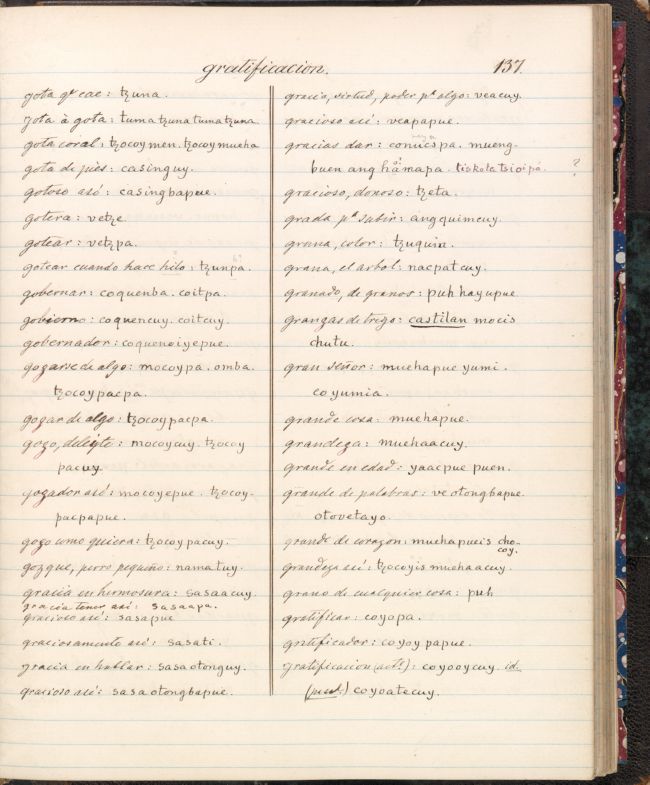 gratificacion.
137.
gota qe cae: tzuna.
gota à gota: tuma tzuna tuma tzuna
gota coral: tzocoymen. tzocoy mueha
gota de piès: casinguy.
gotoso asó: casingbapeue.
gotera: vetze.
gotear: vetzpa.
gotear cuando hace hilo: tzunpa.
gobernar: coquenba. coitpa.
gobierno: coquencuy. coitcuy.
gobernador: coquenoiyepue.
gozarse de algo: mocoypa. omba.
tzocoypacpa.
gozar de algo: tzocoypacpa.
gozo, deleyte: mocoycuy. tzocoy
pacuy.
gozador asé: mocoyepue. tzocoy-
pacpapue.
gozo como quiera: tzocoy pacuy.
gozque, perro pequeño: namatuy.
gracia en hermosura: sasaacuy.
gracia tener asi: sasaapa.
gracioso asi: sasapue
graciosamente asi: sasati.
gracia en hablar: sasaotonguy.
gracioso asi: sasaotongbapue.
gracia, virtud, poder pa algo: veacuy.
gracioso asi: veapapue.
gracias dar: conucspa. mueng-
buen ang hāmapa. tiskota tsioipá. ?
gracioso, donoso: tzeta.
grada pa subir: angquimcuy.
grana, color: tzuquin.
grana, el arbol: nacpatcuy.
granado, de granos: puh hayupue.
granzas de trigo: castilan mocis
chutu.
gran señor: muehapue yumi.
coyumia.
grande cosa: muehapue.
grandeza: muehaacuy.
grande en edad: yaacpue puen.
grande de palabras: ve otongbapue.
otovetayo.
grande de corazon: muehapueis cho-
coy.
grandeza asi: tzocoyis muehaacuy.
grano de cualquier cosa: puh
gratificar: coyopa.
gratificador: coyoy papue.
gratificacion (act.): coyooycuy. id.
(pas.) coyoatecuy.